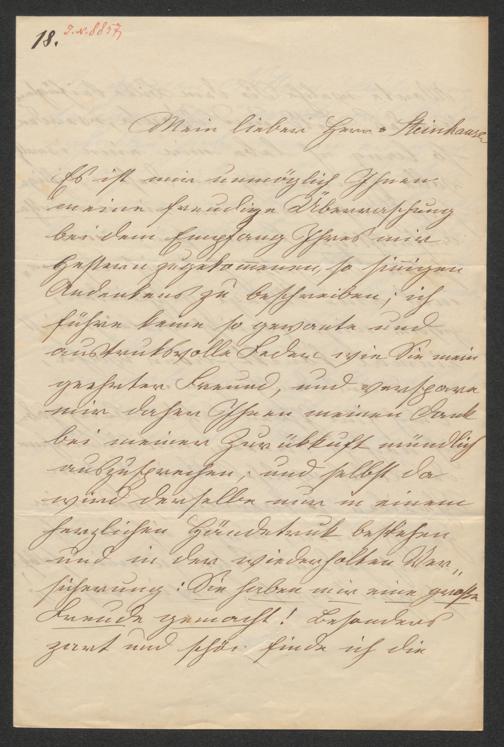 18.
J.N. 8857
Mein lieber Herr Steinhauser
Es ist mir unmöglich Ihnen
meine freudige Überraschung
bei dem Empfang Ihres mir
gestern zugekommenen, so sinnigen
Andenkens zu beschreiben; ich
führe keine so gewante und
austruksvolle Feder wie Sie mein
geehrter Freund, und verspare
mir daher Ihnen meinen Dank
bei meiner Zurükkuft mündlich
auszusprechen, und selbst da
wird derselbe nur in einem
herzlichen Händetruk bestehen
und in der wiederholten Ver„
sicherung: Sie haben mir eine große
Freude gemacht! Besonders
zart und schön finde ich die